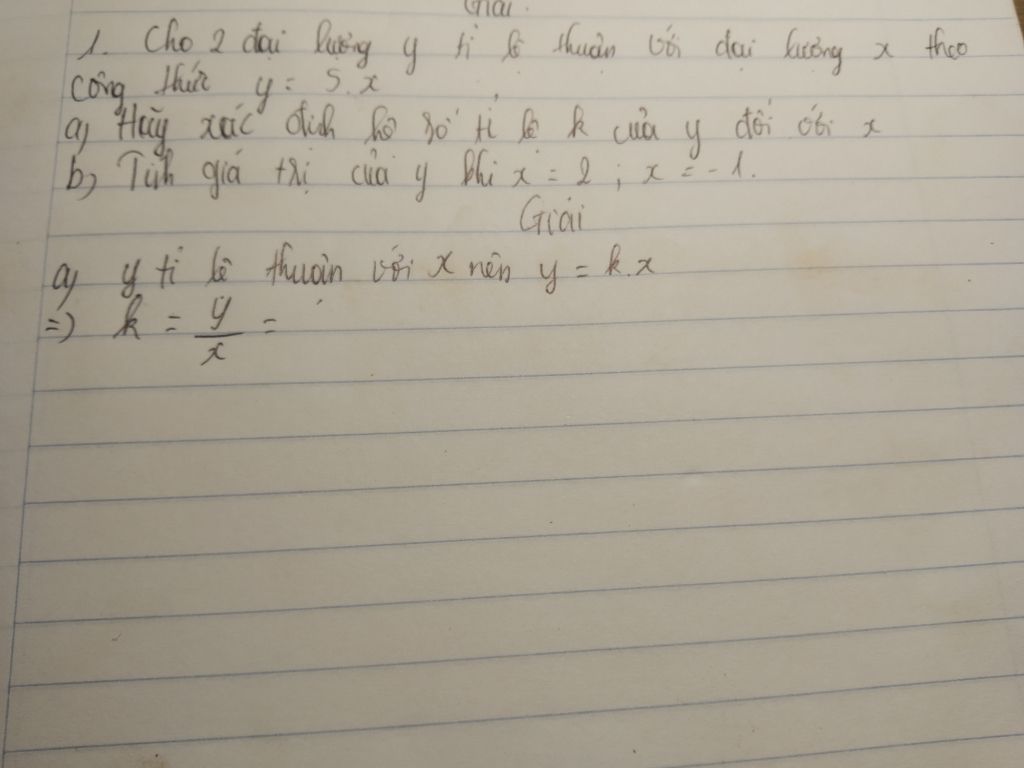 Giải.
1. Cho 2 đại lượng y tỉ lệ thuận với đại lượng x theo
công thức y = 5.x
a) Hãy xác định hệ số tỉ lệ k của y đối với x
b) Tính giá trị của y khi x = 2 ; x = -1.
Giải
a) y tỉ lệ thuận với x nên y = k.x
=> k = y/x =